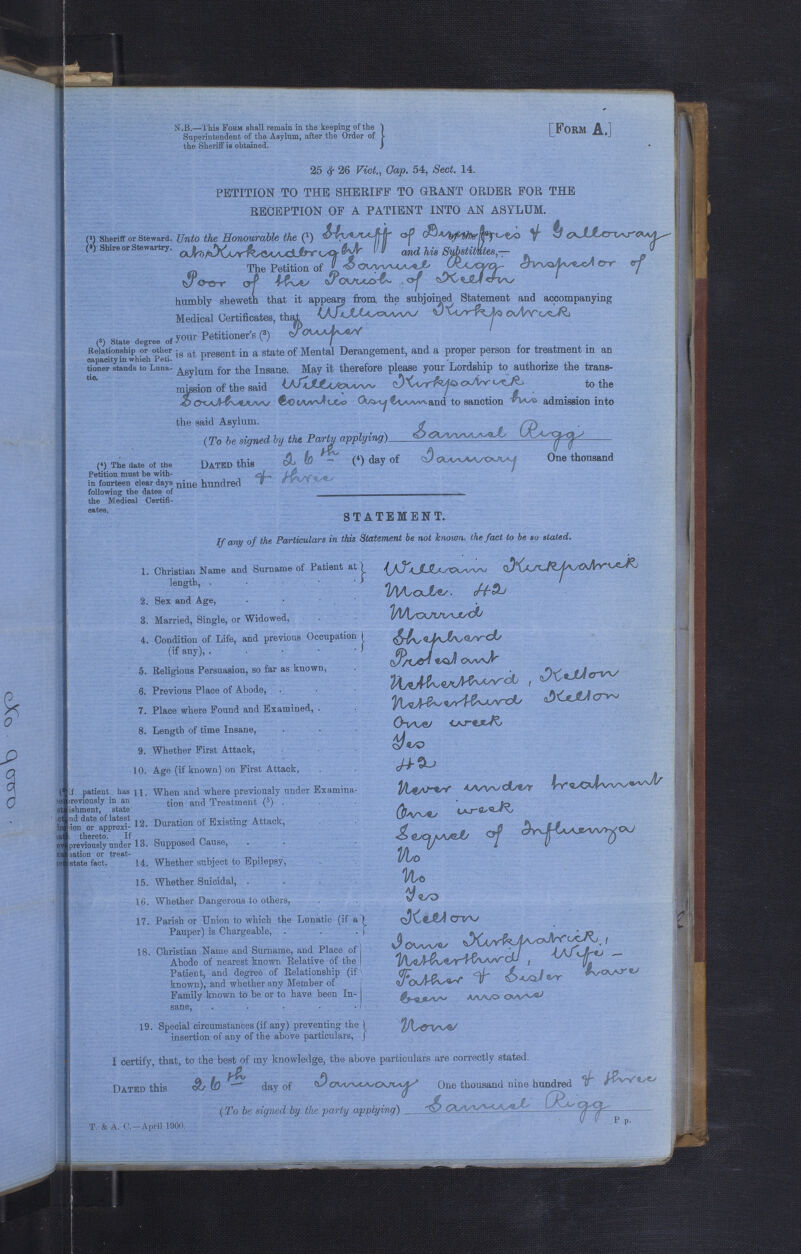 N.B.—This FORM shall remain in the keeping of the
Superintendent of the Asylum, after the Order of
the Sheriff is obtained.
[FORM A.]
25 & 26 Vict., Cap. 54, Sect. 14.
PETITION TO THE SHERIFF TO GRANT ORDER FOR THE
RECEPTION OF A PATIENT INTO AN ASYLUM.
(1) Sheriff or Steward.
(2) Shire or Stewartry.
Unto the Honourable the (1) Sheriff of Dumfries & Galloway
at Kirkcudbright and his Substitutes,—
The Petition of Samuel Rigg Inspector of
Poor of the Parish of Kelton
humbly sheweth that it appears from the subjoined Statement and accompanying
Medical Certificates, that William Kirkpatrick
(3) State degree of
Relationship or other
capacity in which Peti-
tioner stands to Luna-
tic.
your Petitioner's (3) Pauper
is at present in a state of Mental Derangement, and a proper person for treatment in an
Asylum for the Insane. May it therefore please your Lordship to authorize the trans-
mission of the said William Kirkpatrick to the
Southern Counties Asylum and to sanction his admission into
the said Asylum.
(To be signed by the Party applying) Samuel Rigg
(4) The date of the
Petition must be with-
in fourteen clear days
following the dates of
the Medical Certifi-
cates.
DATED this 26th (4) day of January One thousand
nine hundred & three
STATEMENT.
If any of the Particulars in this Statement be not known, the fact to be so stated.
1. Christian Name and Surname of Patient at
length, . William Kirkpatrick
2. Sex and Age, Male. 42
3. Married, Single, or Widowed, Married
4. Condition of Life, and previous Occupation
(if any), . Shepherd
5. Religious Persuasion, so far as known, Protestant
6. Previous Place of Abode, . Netherthird, Kelton
7. Place where Found and Examined, . Netherthird Kelton
8. Length of time Insane, One week
9. Whether First Attack, Yes
10. Age (if known) on First Attack, 42
If patient has
previously in an
state
nd date of latest
ion or approxi-
thereto. If
previously under
ation or treat-
state fact.
11. When and where previously under Examina-
tion and Treatment (5) . Never under treatment
12. Duration of Existing Attack, One week
13. Supposed Cause, Sequel of Influenza
14. Whether subject to Epilepsy, No
15. Whether Suicidal, . No
16. Whether Dangerous to others, Yes
17. Parish or Union to which the Lunatic (if a
Pauper) is Chargeable, . Kelton
18. Christian Name and Surname, and Place of
Abode of nearest known Relative of the
Patient, and degree of Relationship (if
known), and whether any Member of
Family known to be or to have been In-
sane,
Jane Kirkpatrick,
Netherthird, Wife —
Father & Sister have
been insane
19. Special circumstances (if any) preventing the
insertion of any of the above particulars, None
I certify, that, to the best of my knowledge, the above particulars are correctly stated.
DATED this 26th day of January One thousand nine hundred & three
(To be signed by the party applying) Samuel Rigg
T. & A. C.—April 1900.
P p.